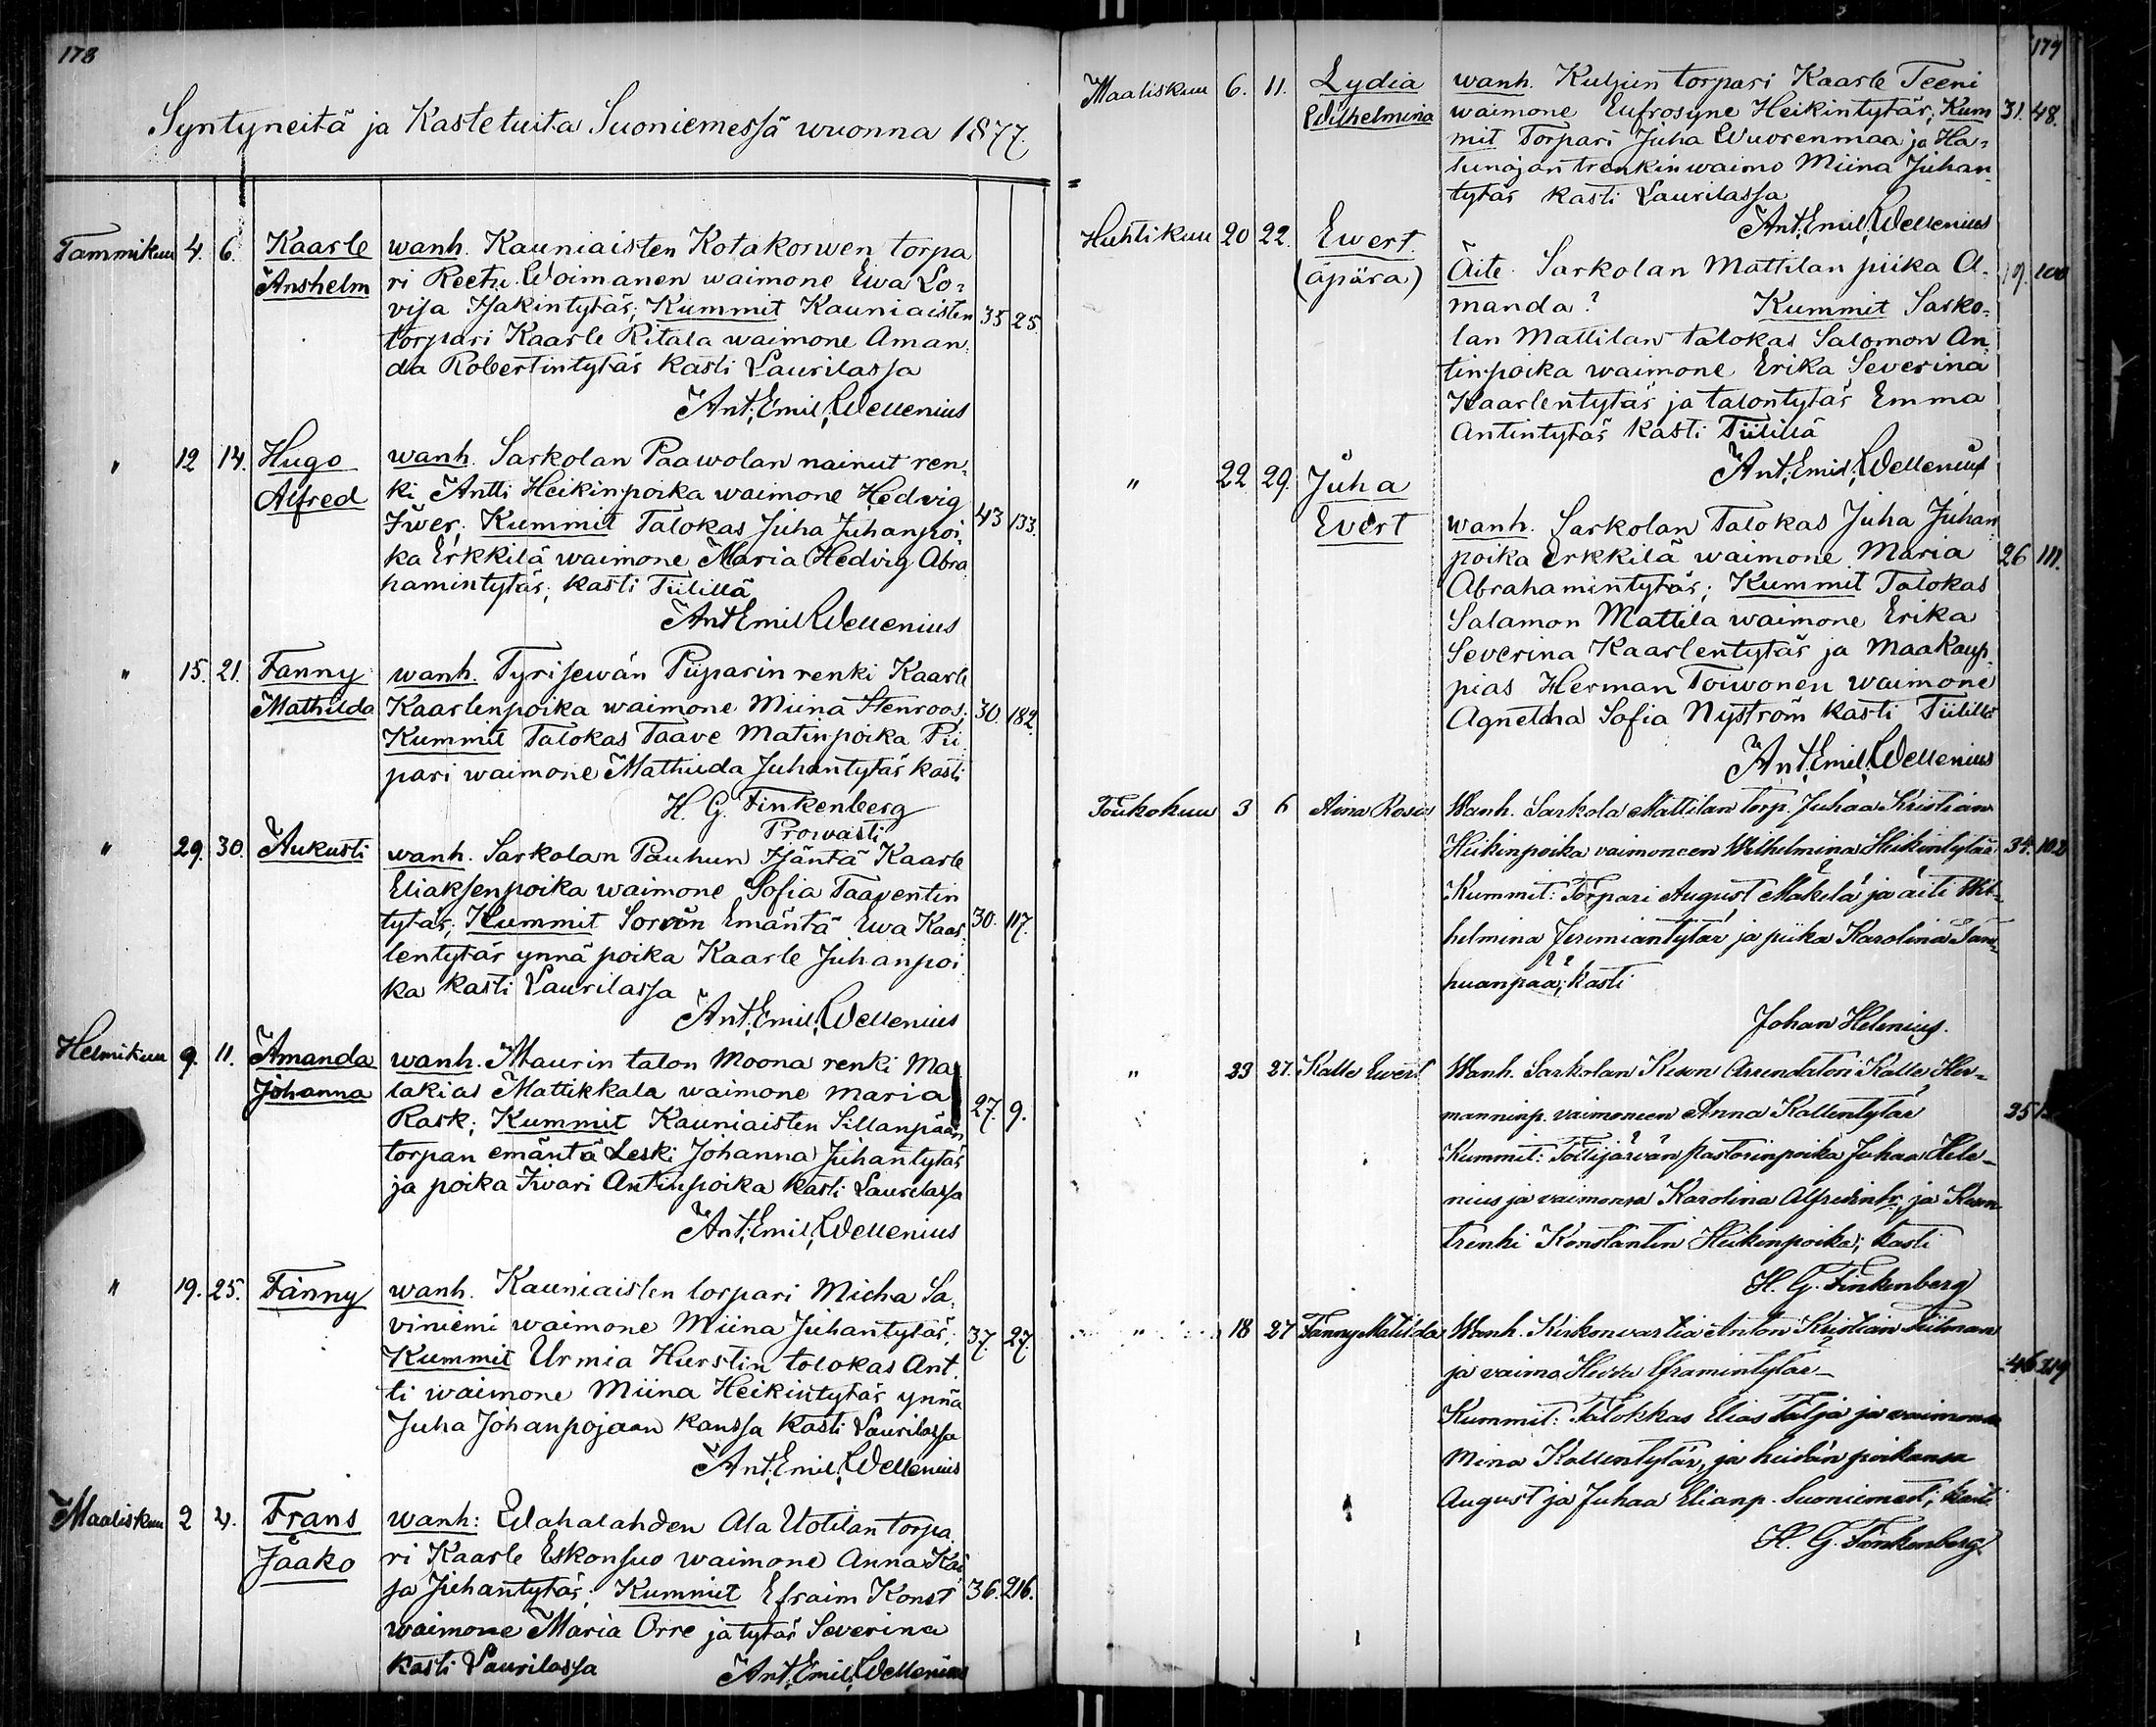 178
Syntyneitä ja Kastetuita Suoniemessä wuonna 1877.
Tammikuu 4. 6. Kaarle wanh. Kauniaisten Kotakorwen torpa
Anshelm ri Reetu Woimanen waimone Ewa Lo-
visa Isakintytär; Kummit Kauniaisten 35 25.
torpari Kaarle Ritala waimone Aman-
da Robertintytär kasti Laurilassa
Ant. Emil Wellenius
" 12 14. Hugo wanh. Sarkolan Paawolan nainut ren-
Alfred ki Antti Heikinpoika waimone Hedvig
Iwer; Kummit Talokas Juha Juhanpoi- 43 133.
ka Erkkilä waimone Maria Hedvig Abra
hamintytär; kasti Tiilillä
Ant Emil Wellenius
" 15. 21. Fanny wanh. Tyrisewän Piiparin renki Kaarle
Mathilda Kaarlenpoika waimone Miina Stenroos; 30. 182.
Kummit Talokas Taave Matinpoika Pii
pari waimone Mathilda Juhantytär kasti
H. G. Finkenberg
Prowasti
" 29. 30. Aukusti wanh. Sarkolan Pauhun Isäntä Kaarle
Eliaksenpoika waimone Sofia Taaventin
tytär; Kummit Sorvän Emäntä Ewa Kaar- 30. 117.
lentytär ynnä poika Kaarle Juhanpoi
ka kasti Laurilassa
Ant. Emil. Wellenius
Helmikuu 9. 11. Amanda wanh. Maurin talon Moona renki Ma
Johanna lakias Mattikkala waimone Maria
Rask; Kummit Kauniaisten Sillanpään 27. 9.
torpan emäntä Leski Johanna Juhantytär
ja poika Iivari Antinpoika kasti Laurilassa
Ant. Emil. Wellenius
" 19. 25. Fanny wanh. Kauniaisten torpari Micha Sa-
viniemi waimone Miina Juhantytär; 37. 27.
Kummit Urmia Hurstin tolokas Ant
ti waimone Miina Heikintytär ynnä
Juha Johanpojaan kanssa kasti Laurilassa
Ant. Emil. Wellenius
Maaliskuu 2 4. Frans wanh: Wahalahden Ala Uotilan torpa
Jaako ri Kaarle Eskonsuo waimone Anna Kai
sa Juhantytär; Kummit Efraim Konst 36. 216.
waimone Maria Orre ja tytär Severina
kasti Laurilassa Ant. Emil. Wellenius
179
Maaliskuu 6. 11. Lydia wanh. Kuljun torpari Kaarle Teeni
Wilhelmina waimone Eufrosyne Heikintytär; Kum 31. 48.
mit Torpari Juha Wuorenmaa ja Ha-
tunajan trenkin waimo Miina Juhan-
tytär kasti Laurilassa
Ant. Emil. Wellenius
Huhtikuu 20 22. Ewert
(äpärä) Äite Sarkolan Mattilan piika A- 19. 100
manda? Kummit Sarko-
lan Mattilan talokas Salomon An
tinpoika waimone Erika Severina
Kaarlentytär ja talontytär Emma
Antintytär kasti Tiilillä
Ant. Emil. Wellenius
" 22 29. Juha
Evert wanh. Sarkolan Talokas Juha Juhan
poika Erkkilä waimone Maria 26 111.
Abrahamintytär; Kummit Talokas
Salamon Mattila waimone Erika
Severina Kaarlentytär ja Maakaup-
pias Herman Toiwonen waimone
Agnetha Sofia Nyström kasti Tiilillä
Ant. Emil. Wellenius
Toukokuu 3 6 Aina Rosa Wanh. Sarkola Mattilan torp. Juhaa Kristian
Heikinpoika vaimoneen Wilhelmina Heikintytär 34. 102
Kummit: Torpari August Mäkelä ja äiti Wil-
helmina Jeremiantytär ja piika Karolina Tan-
huanpää; kasti
Johan Helenius.
" 23 27. Kalle Ewert Wanh. Sarkolan Keson Arrendatori Kalle Her-
manninp. vaimoneen Anna Kallentytär 25
Kummit: Tottijärwän pastorinpoika Juhaa Hele-
nius ja vaimonsa Karolina Alfredintr, ja Keson
trenki Konstantin Heikinpoika; kasti
H. G. Finkenberg
" 18 27 Fanny Matilda Wanh. Kirkonvartia Anton Kristian Tiilman
ja vaimo Hedda Eframintytär 46 219
Kummit: Talokkas Elias Talja ja waimonsa
Mina Kallentytär, ja heidän poikansa
August ja Juhaa Elianp. Suoniemest; kasti
H. G. Finkenberg.